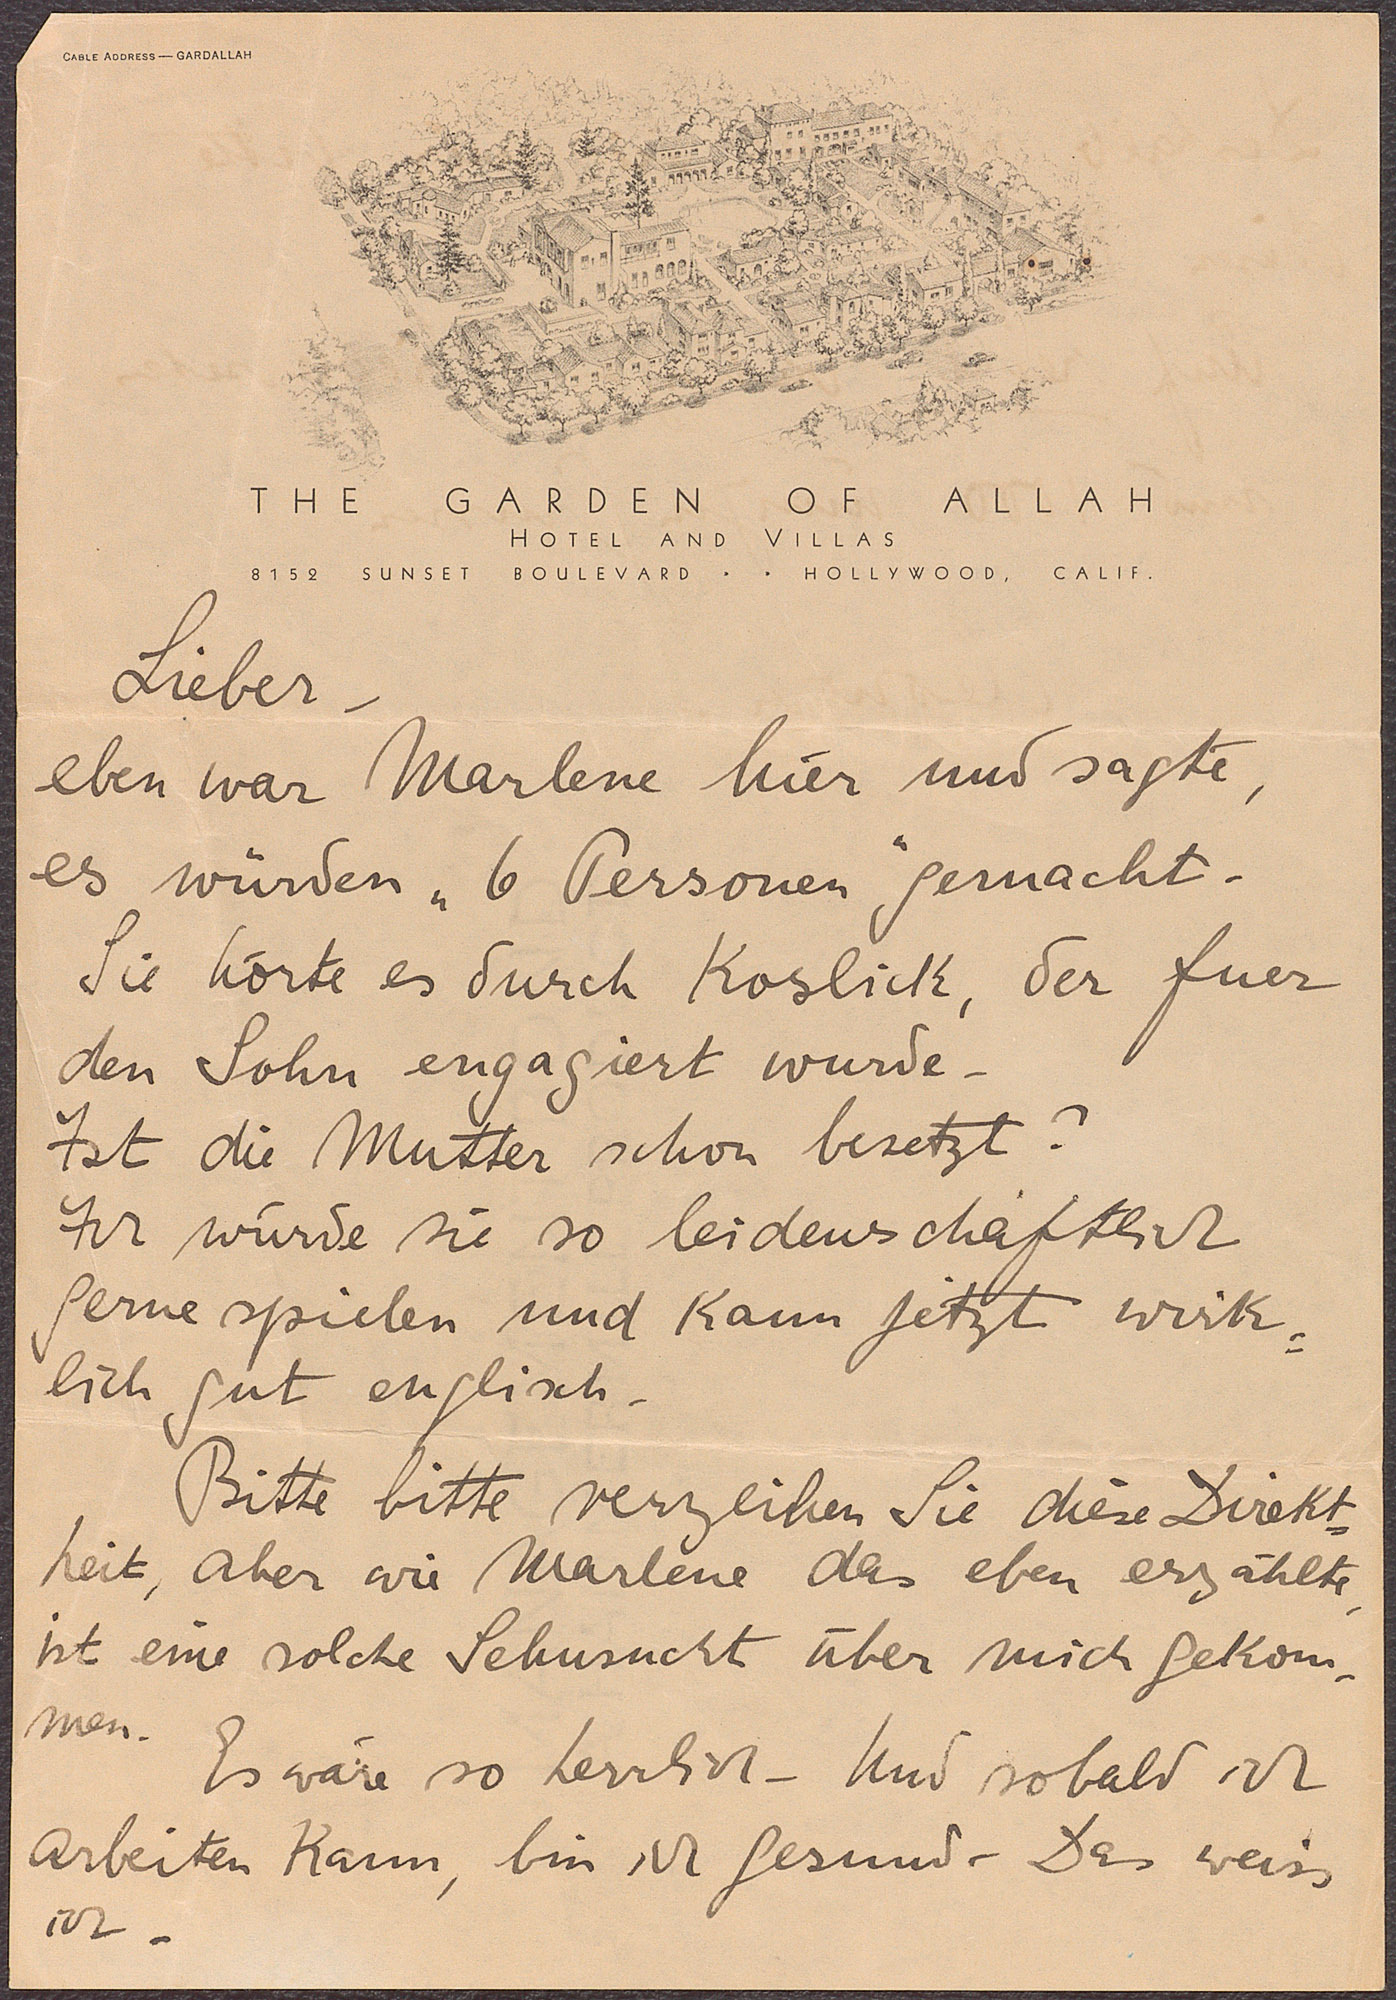 CABLE ADDRESS — GARDALLAH
THE GARDEN OF ALLAH
HOTEL AND VILLAS
8152 SUNSET BOULEVARD · · HOLLYWOOD, CALIF.
Lieber –
eben war Marlene hier und sagte,
es würden „6 Personen“ gemacht –
Sie hörte es durch Koslick, der fuer
den Sohn engagiert wurde –
Ist die Mutter schon besetzt?
Ich würde sie so leidenschaftlich
gerne spielen und kann jetzt wirk=
lich gut englisch –
Bitte bitte verzeihen Sie diese Direkt=
heit, aber wie Marlene das eben erzählte,
ist eine solche Sehnsucht über mich gekom-
men.
Es wäre so herrlich – Und sobald ich
arbeiten kann, bin ich gesund – Das weiss
ich –